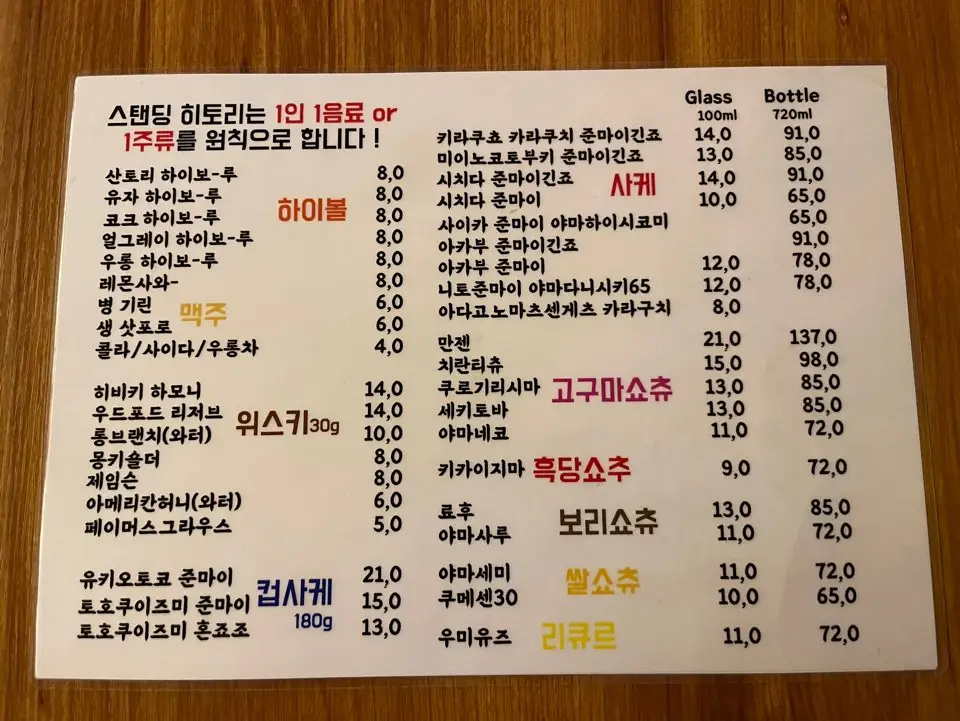 스탠딩 히토리는 1인 1음료 or
1주류를 원칙으로 합니다 !
산토리 하이보-루 8,0
유자 하이보-루 8,0
하이볼
코크 하이보-루 8,0
얼그레이 하이보-루 8,0
우롱 하이보-루 8,0
레몬사와- 8,0
병 기린 6,0
맥주
생 삿포로 6,0
콜라/사이다/우롱차 4,0
히비키 하모니 14,0
우드포드 리저브 14,0
위스키30g
롱브랜치(와터) 10,0
몽키숄더 8,0
제임슨 8,0
아메리칸허니(와터) 6,0
페이머스그라우스 5,0
유키오토코 준마이 21,0
컵사케
토호쿠이즈미 준마이 15,0
180g
토호쿠이즈미 혼죠조 13,0
Glass Bottle
100ml 720ml
키라쿠쵸 카라쿠치 준마이긴죠 14,0 91,0
미이노코토부키 준마이긴죠 13,0 85,0
시치다 준마이긴죠 사케 14,0 91,0
시치다 준마이 10,0 65,0
사이카 준마이 야마하이시코미 65,0
아카부 준마이긴죠 91,0
아카부 준마이 12,0 78,0
니토준마이 야마다니시키65 12,0 78,0
아다고노마츠센게츠 카라구치 8,0
만젠 21,0 137,0
치란티츄 15,0 98,0
쿠로기리시마 고구마쇼츄 13,0 85,0
세키토바 13,0 85,0
야마네코 11,0 72,0
키카이지마 흑당쇼추 9,0 72,0
료후 13,0 85,0
보리쇼츄
야마사루 11,0 72,0
야마세미 11,0 72,0
쌀쇼츄
쿠메센30 10,0 65,0
우미유즈 리큐르 11,0 72,0